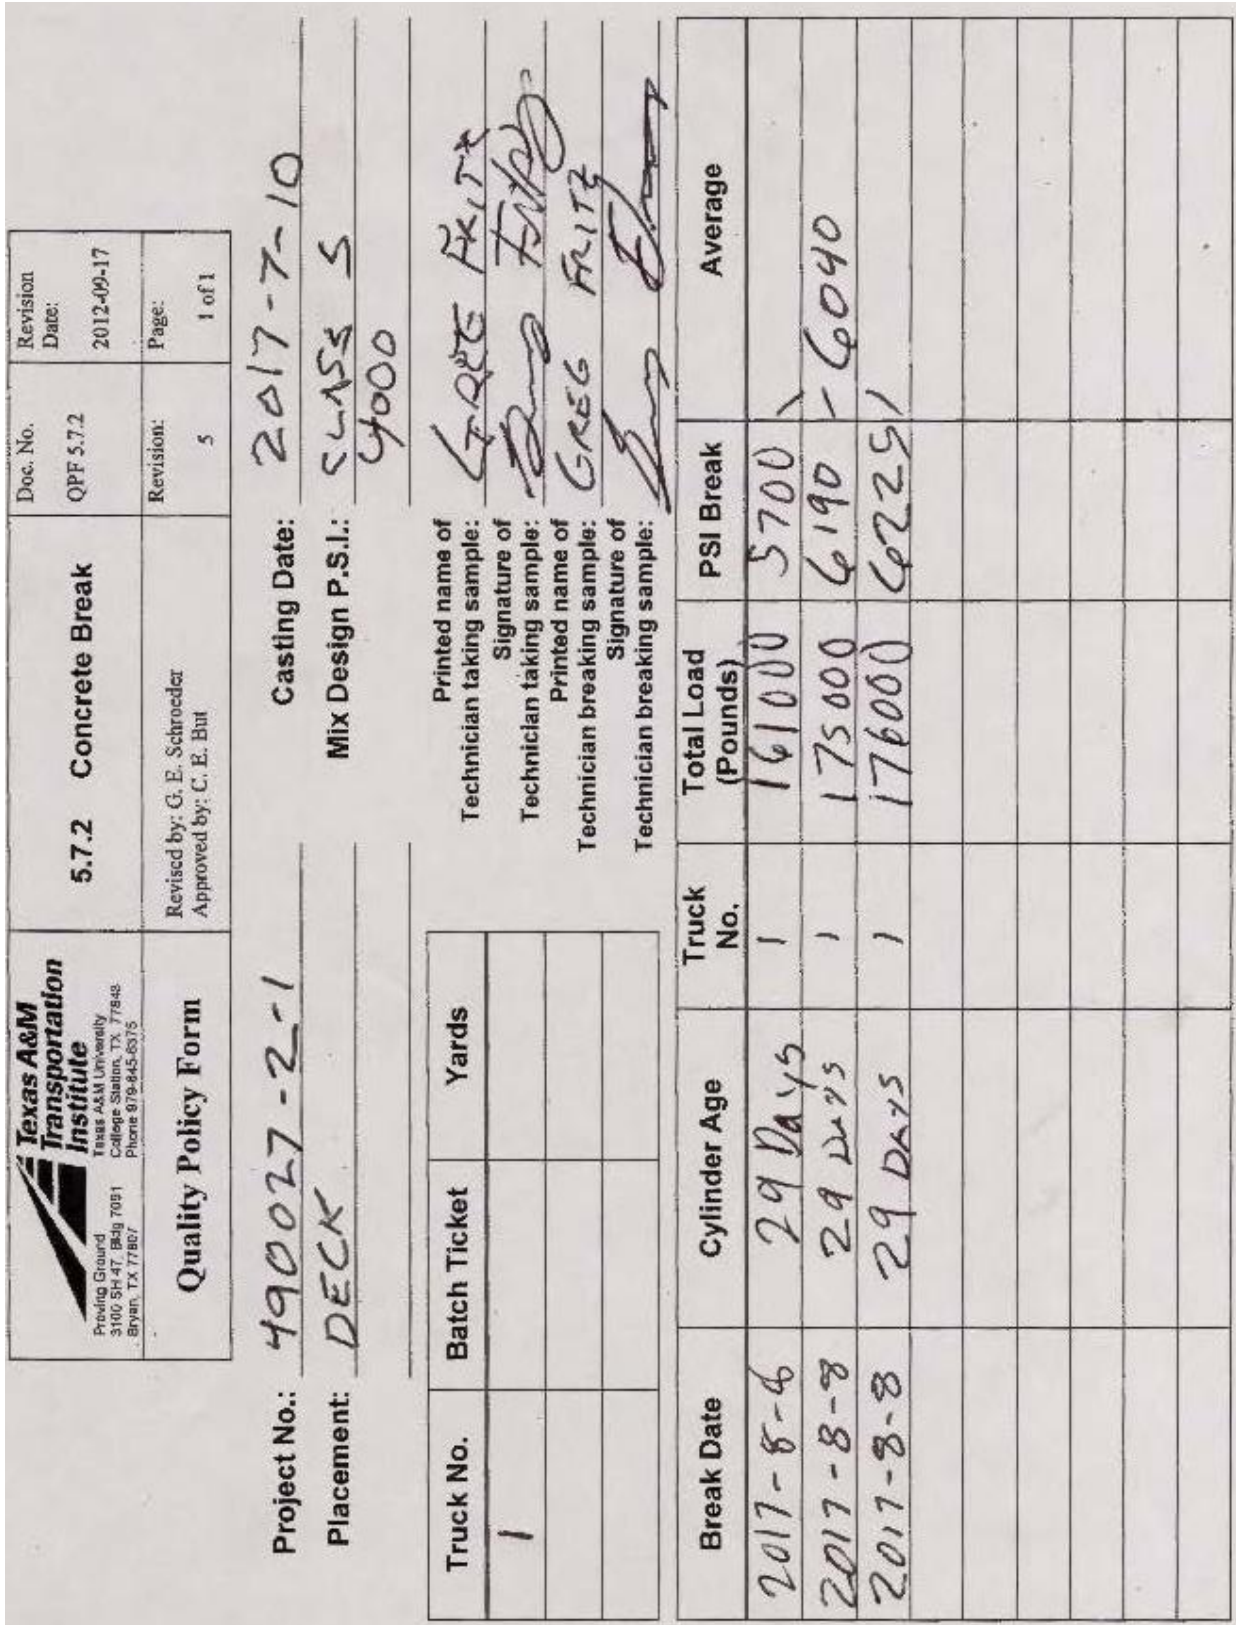 Texas A&M
Transportation
Institute
Proving Ground
3100 SH 47, Bldg 7091
Bryan, TX 77807
Texas A&M University
College Station, TX 77843
Phone 979-845-6375
5.7.2 Concrete Break
Doc. No.
QPF 5.7.2
Revision
Date:
2012-09-17
Quality Policy Form
Revised by: G. E. Schroeder
Approved by: C. E. Buth
Revision:
5
Page:
1 of 1
Project No.: 490027-2-1
Casting Date: 2017-7-10
Placement: DECK
Mix Design P.S.I.: CLASS S
4000
Truck No. Batch Ticket Yards
1
Printed name of
Technician taking sample: GREG FRITZ
Signature of
Technician taking sample:
Printed name of
Technician breaking sample: GREG FRITZ
Signature of
Technician breaking sample:
Break Date Cylinder Age Truck No. Total Load (Pounds) PSI Break Average
2017-8-8 29 Days 1 161000 5700
2017-8-8 29 Days 1 175000 6190 - 6040
2017-8-8 29 Days 1 176000 6225